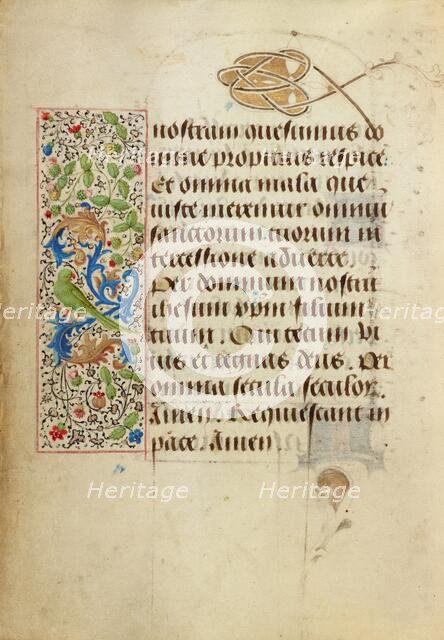 nostram quesumus do
mine propitius respice.
Et omnia mala que
iuste meremur omniū
sanctorum tuorum in
tercessione aduerte.
Per dominum nostrū
ihesum xpm filium
tuum. Qui tecum vi
uis et regnas deus. Per
omnia secula seculor.
Amen. Requiescant in
pace. Amen
Heritage Heritage
Heritage Heritage